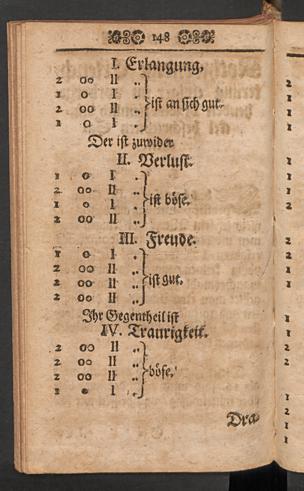 148
I. Erlangung,
2 oo II ..
1 o I ..
2 oo II .. ist an sich gut.
1 o I ..
Der ist zuwider
II. Verlust.
1 o I ..
2 oo II ..
1 o I .. ist böse.
2 oo II ..
III. Freude.
1 o I ..
2 oo II ..
2 oo II .. ist gut.
2 oo II ..
Ihr Gegentheil ist
IV. Traurigkeit.
2 oo II ..
2 oo II ..
2 oo II .. böse.
1 o I ..
Dra-